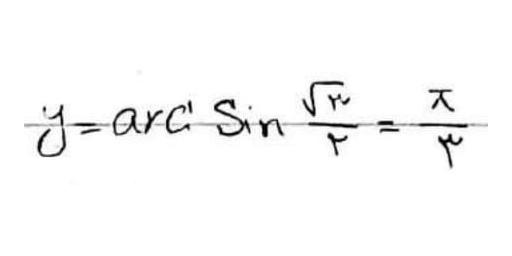 y = arc Sin √۳/۲ = π/۳